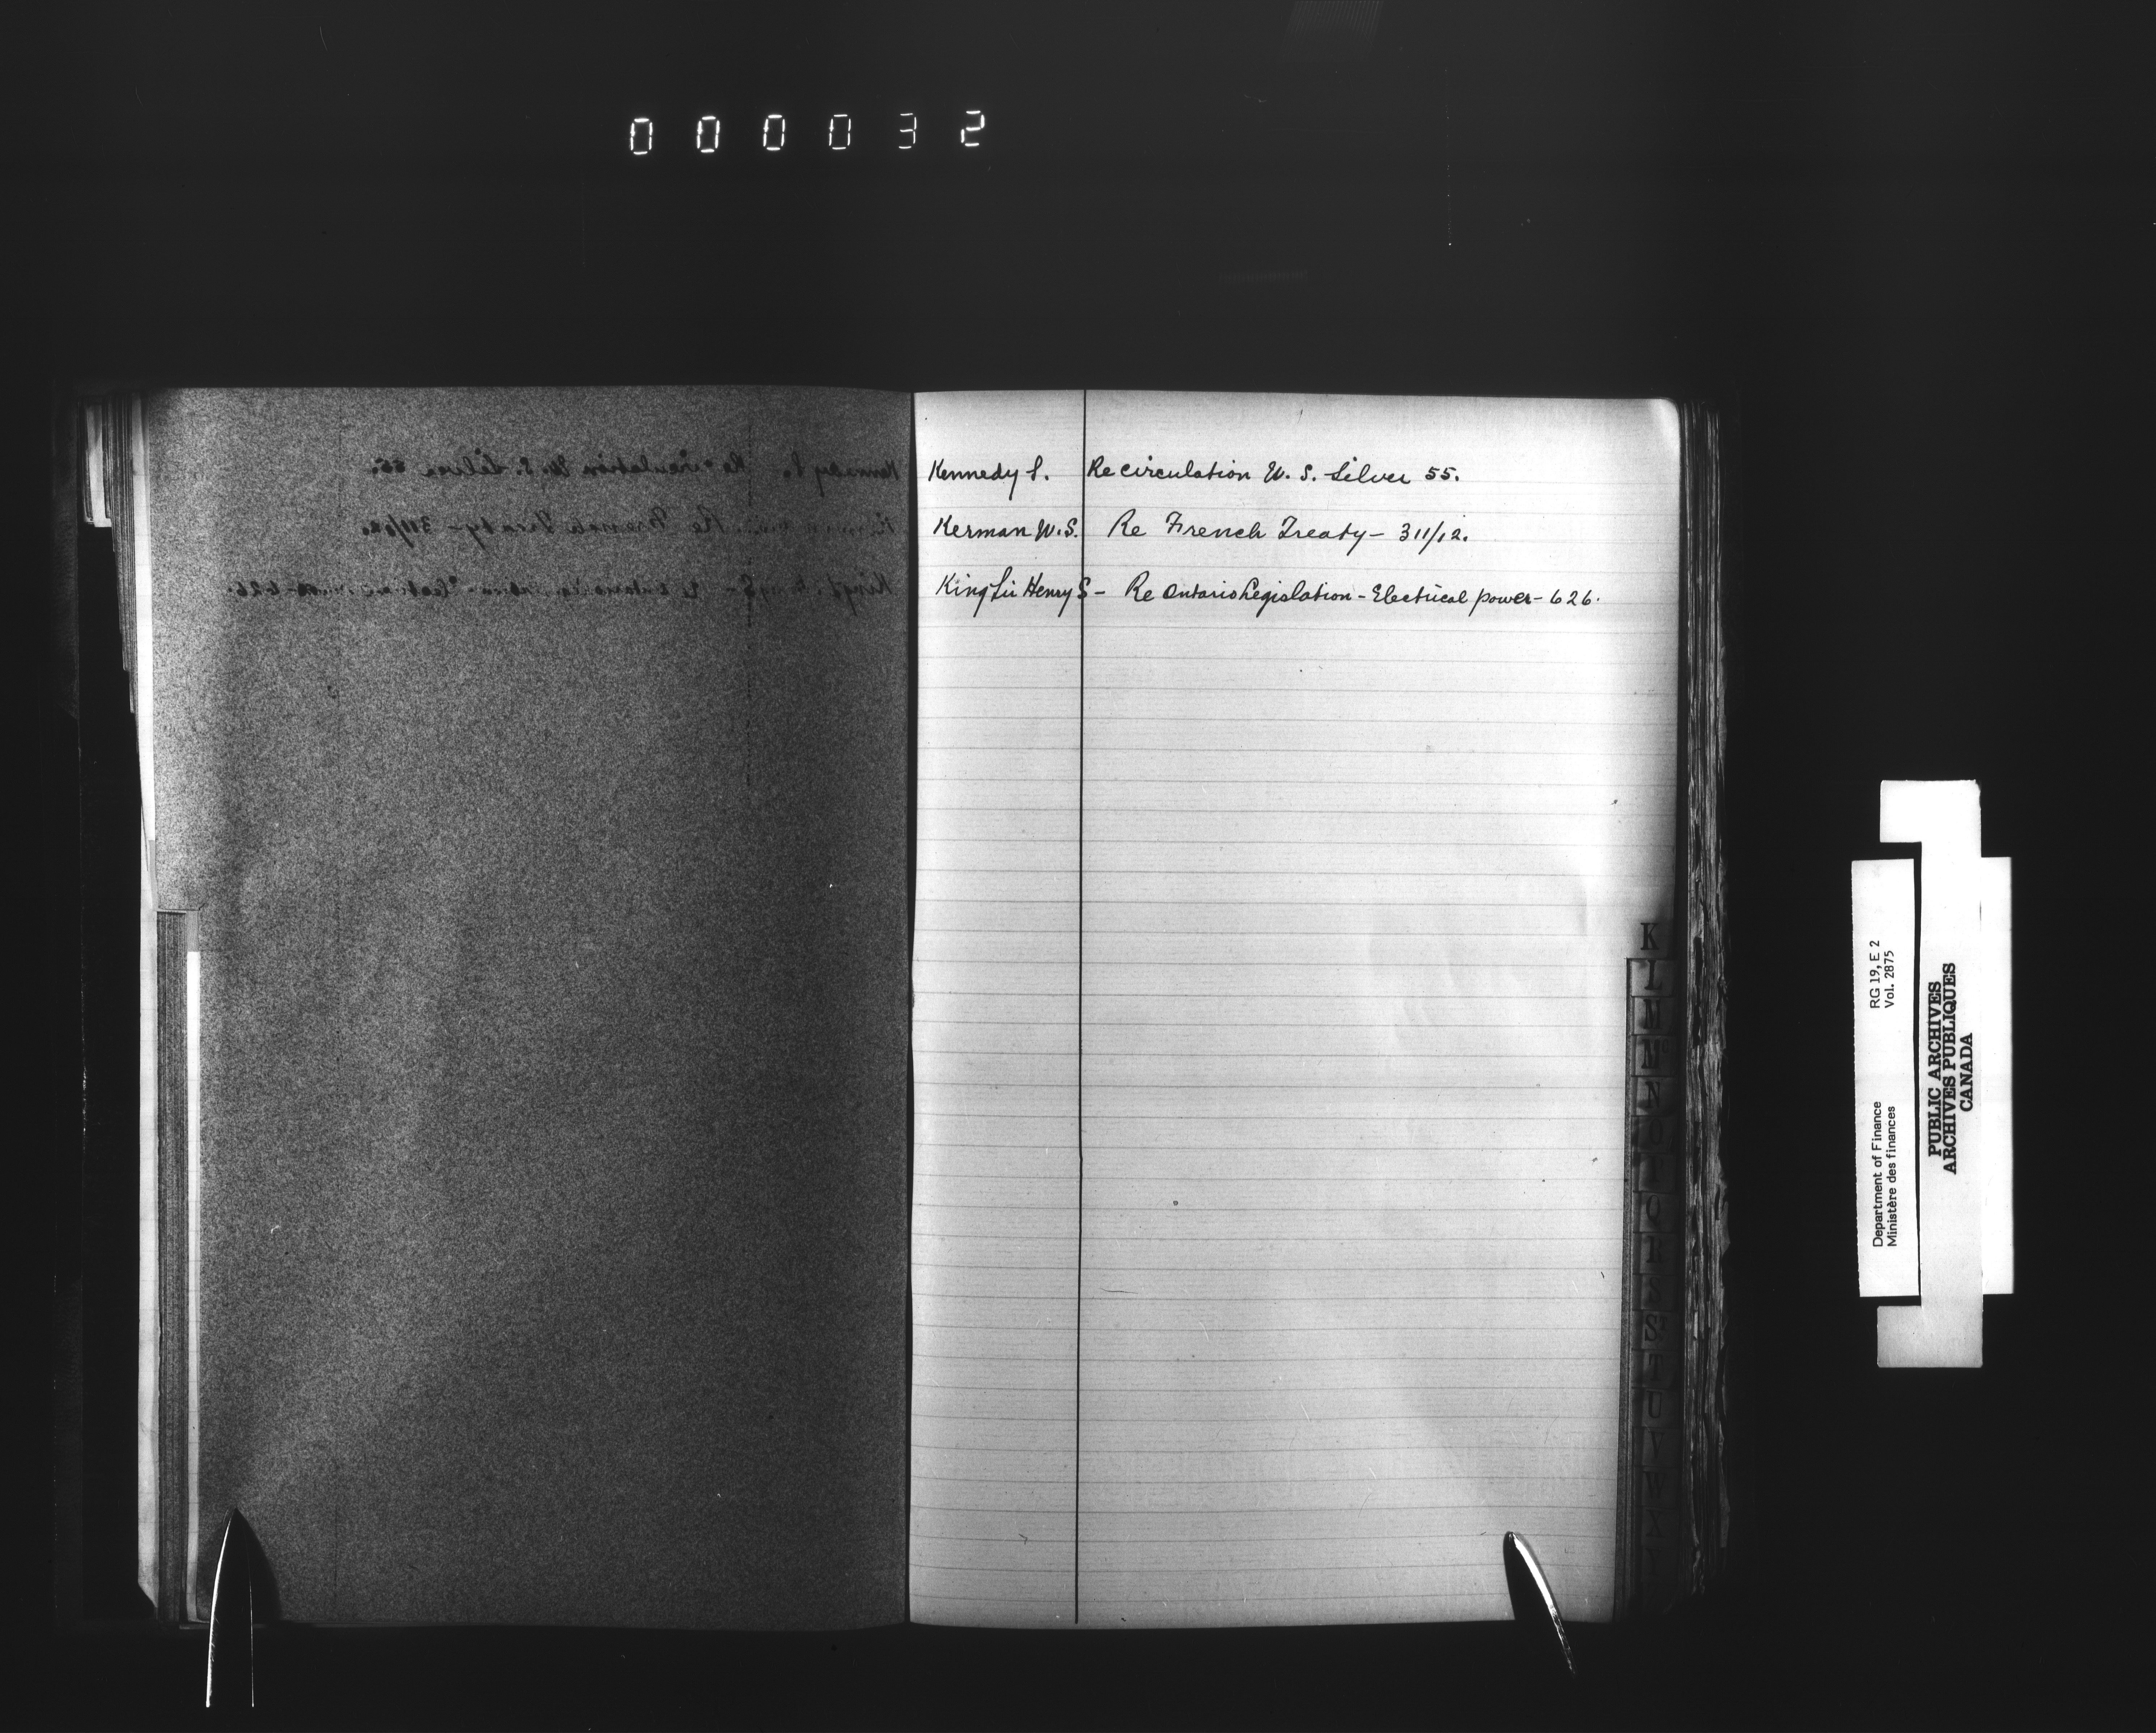 000032
Kennedy S. Re circulation U. S. Silver 55.
Kerman W.S. Re French Treaty - 311/12.
King Sir Henry S - Re Ontario Legislation - Electrical power - 626.
K
L
M
N
O
Q
R
S
T
U
V
W
Department of Finance RG 19, E 2
Ministère des finances Vol. 2875
PUBLIC ARCHIVES
ARCHIVES PUBLIQUES
CANADA